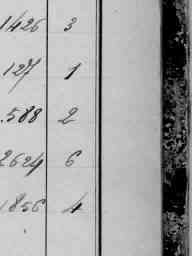 1426 3
127 1
.588 2
2624 6
1856 4